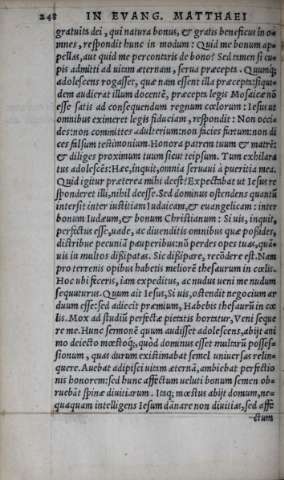 248 IN EVANG. MATTHAEI
gratuitò dei, qui natura bonus, & gratis beneficus in o=
mnes, respõdit hunc in modum: Quid me bonum ap=
pellas, aut quid me percontaris de bono? Sed tamen si cu=
pis admitti ad uitam æternam, serua præcepta. Quumq;
adolescens rogasset, quæ nam essent illa præcepta: siqui=
dem audierat illum docentẽ, præcepta legis Mosaicæ nõ
esse satis ad consequendum regnum cœlorum: Iesus ut
omnibus eximeret legis fiduciam, respõdit: Non occi=
des: non committes adulterium: non facies furtum: non di
ces falsum testimonium. Honora patrem tuum & matrẽ:
& diliges proximum tuum sicut teipsum. Tum exhilara
tus adolescẽs: Hæc, inquit, omnia seruaui à pueritia mea.
Quid igitur præterea mihi deest? Expectabat ut Iesus re
spõderet illi, nihil deesse. Sed dominus ostendens quantũ
intersit inter iustitiam Iudaicam, & euangelicam: inter
bonum Iudæum, & bonum Christianum: Si uis, inquit,
perfectus esse, uade, ac diuenditis omnibus quæ possides,
distribue pecuniã pauperibus: nõ perdes opes tuas, quã=
uis in multos dissipatas. Sic dissipare, recõdere est. Nam
pro terrenis opibus habebis meliorẽ thesaurum in cœlis.
Hoc ubi feceris, iam expeditus, ac nudus ueni me nudum
sequuturus. Quum ait Iesus, Si uis, ostendit negocium ar
duum esse: sed adiecit præmium, Habebis thesaurũ in cœ
lis. Mox ad studiũ perfectæ pietatis hortatur, Veni seque
re me. Hunc sermonẽ quum audisset adolescens, abijt ani
mo deiecto mœstoq;, quòd dominus esset multarũ posses=
sionum, quas durum existimabat semel uniuersas relin=
quere. Auebat adipisci uitam æternã, ambiebat perfectio
nis honorem: sed hunc affectum ueluti bonum semen ob=
ruebãt spinæ diuitiarum. Itaq; mœstus abijt domum, ne=
quaquam intelligens Iesum dãnare non diuitias, sed affe
ctum